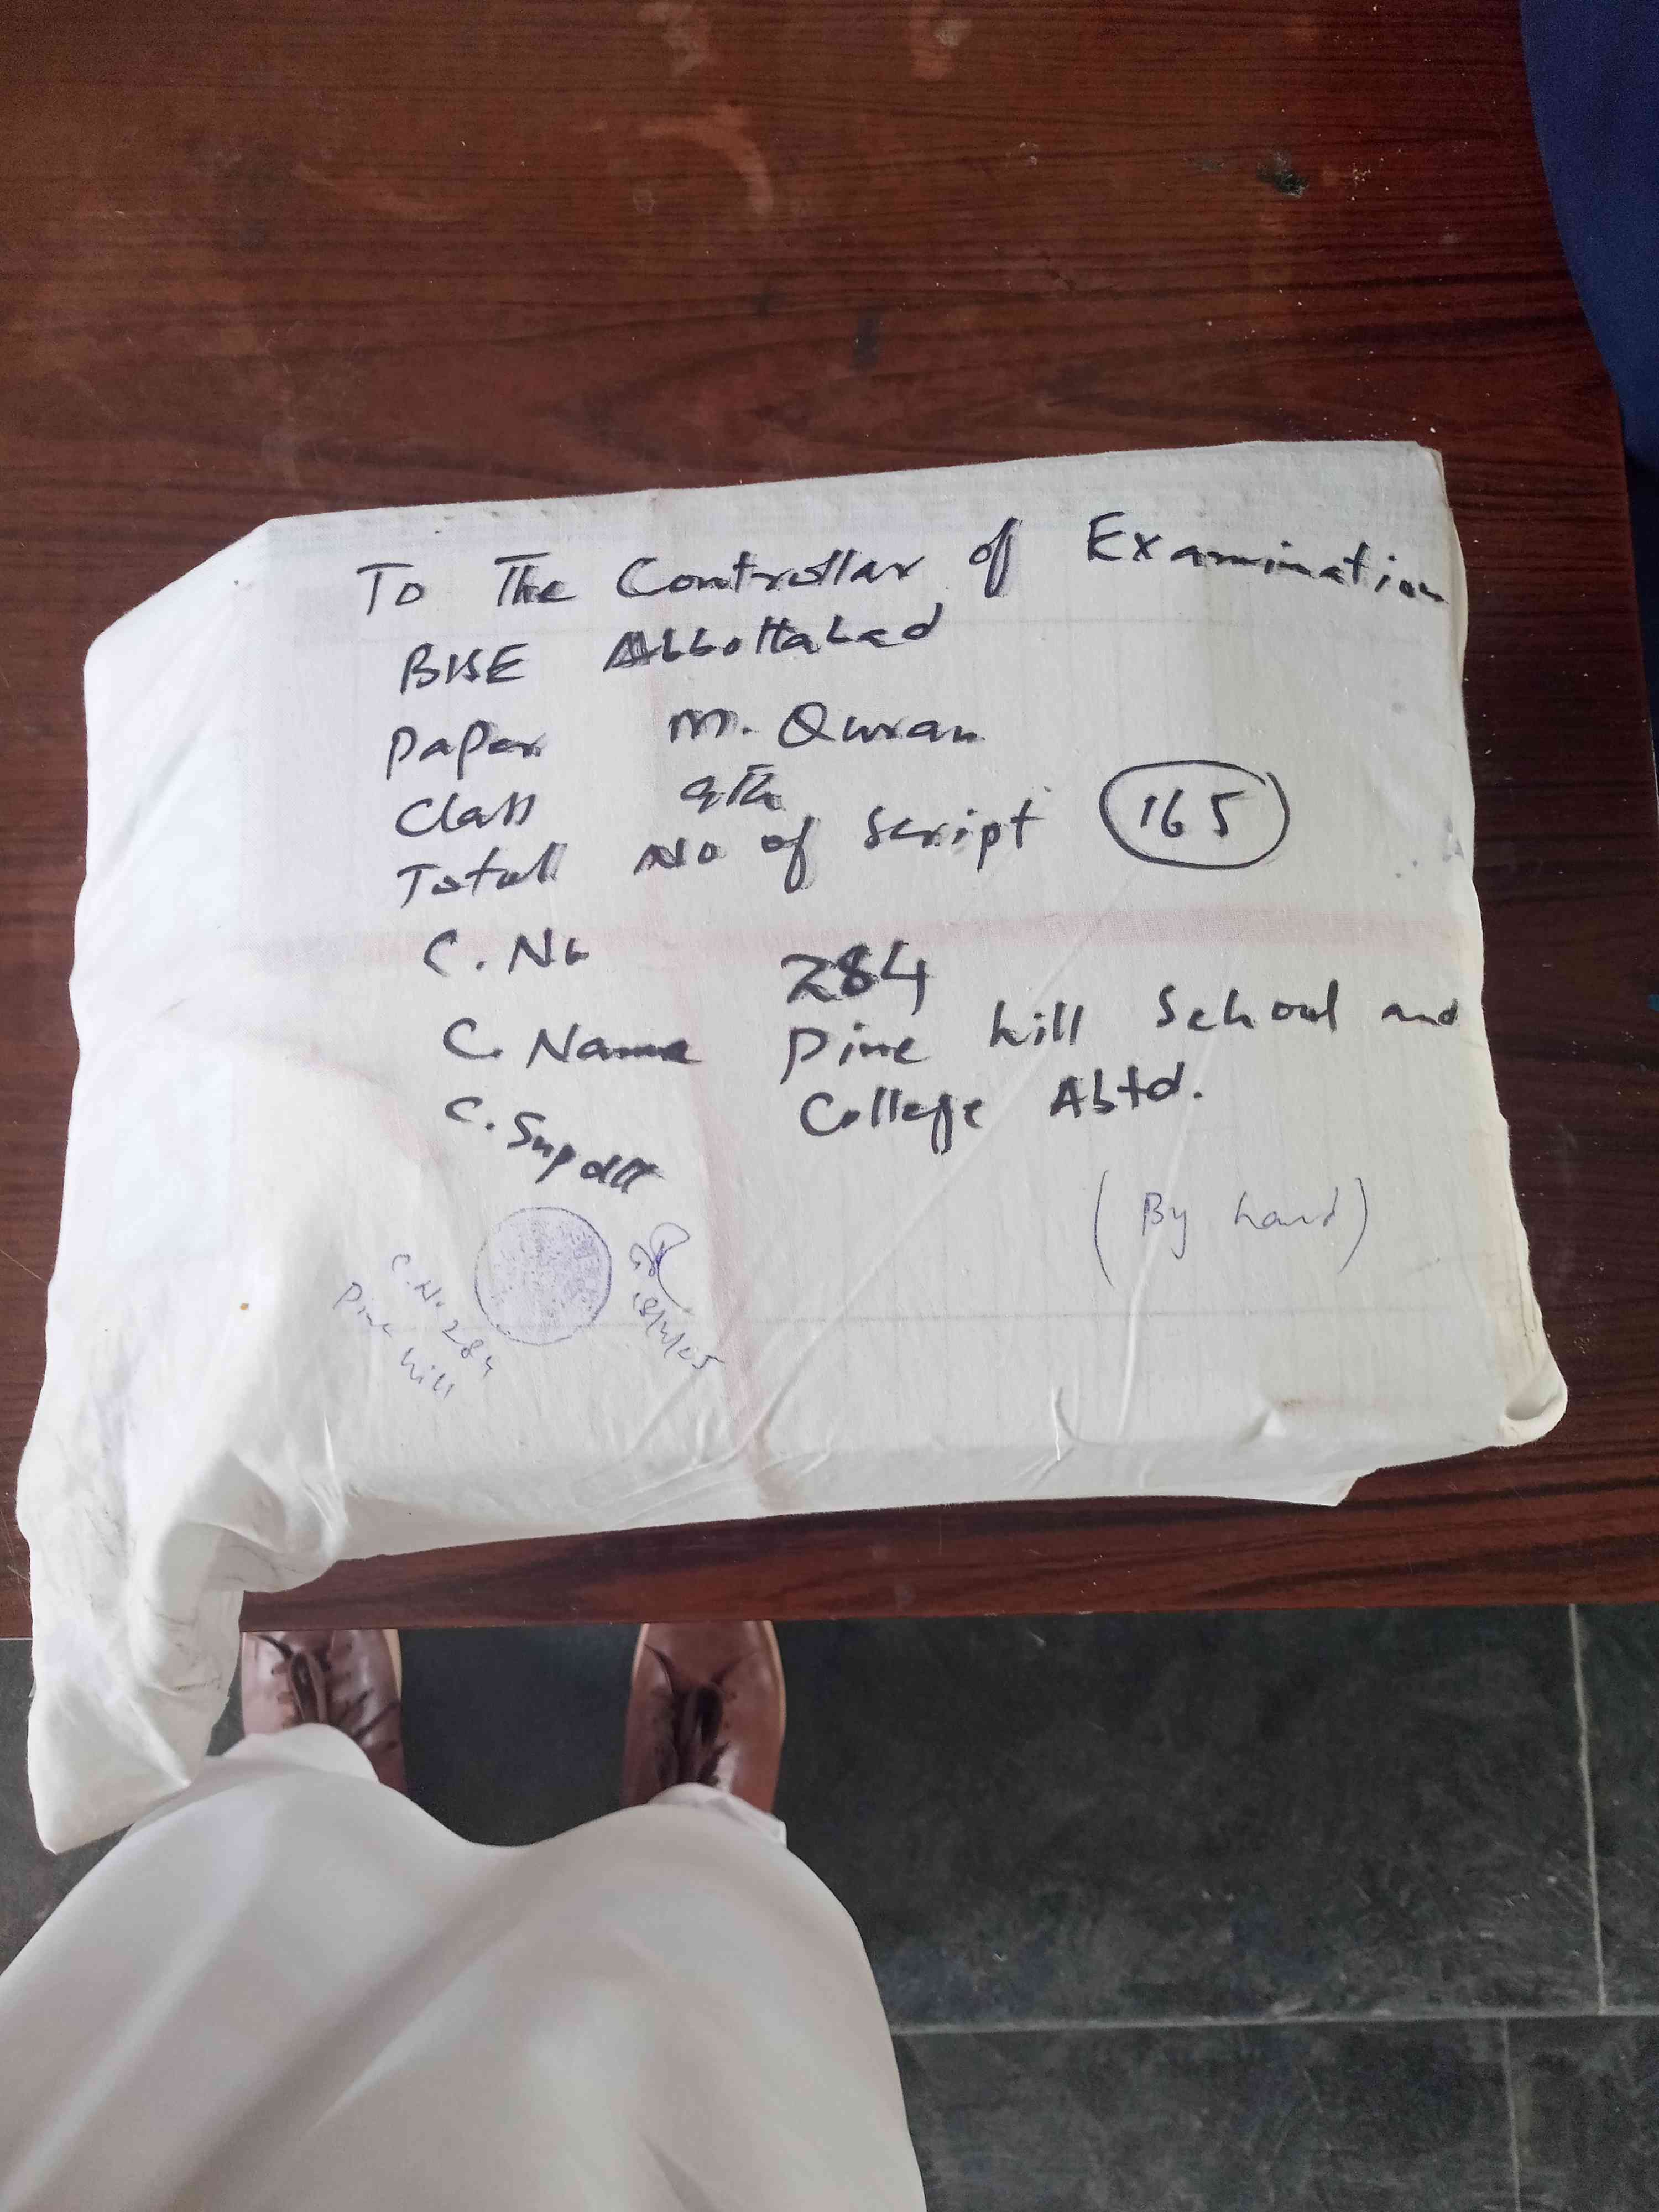 To The Controllar of Examination
BISE Abbottabad
Paper M. Quran
Class 9Th
Totall No of Script 165
C. No 284
C. Name Pine hill School and
College Abtd.
C. Supdtt
(By hand)
C. No 284
Pine hill